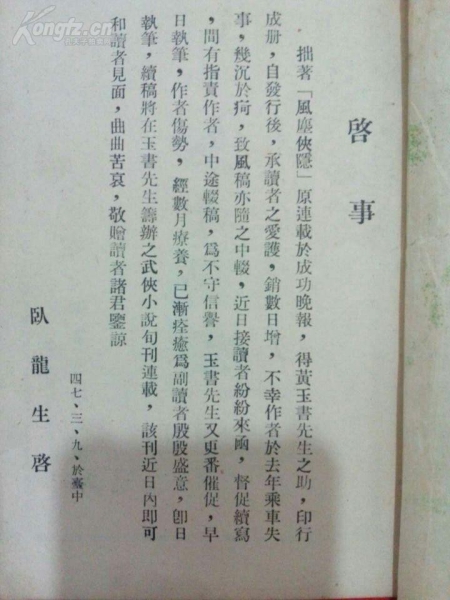 啓事
拙著「風塵俠隱」原連載於成功晚報，得黃玉書先生之助，印行
成册，自發行後，承讀者之愛護，銷數日增，不幸作者於去年乘車失
事，幾沉於疴，致風稿亦隨之中輟，近日接讀者紛紛來函，督促續寫
，間有指責作者，中途輟稿，爲不守信譽，玉書先生又更番催促，早
日執筆，作者傷勢，經數月療養，已漸痊癒爲副讀者殷殷盛意，卽日
執筆，續稿將在玉書先生籌辦之武俠小說旬刊連載，該刊近日內即可
和讀者見面，曲曲苦衷，敬贈讀者諸君鑒諒
臥龍生啓
四七、三、九、於臺中
Kongfz.com